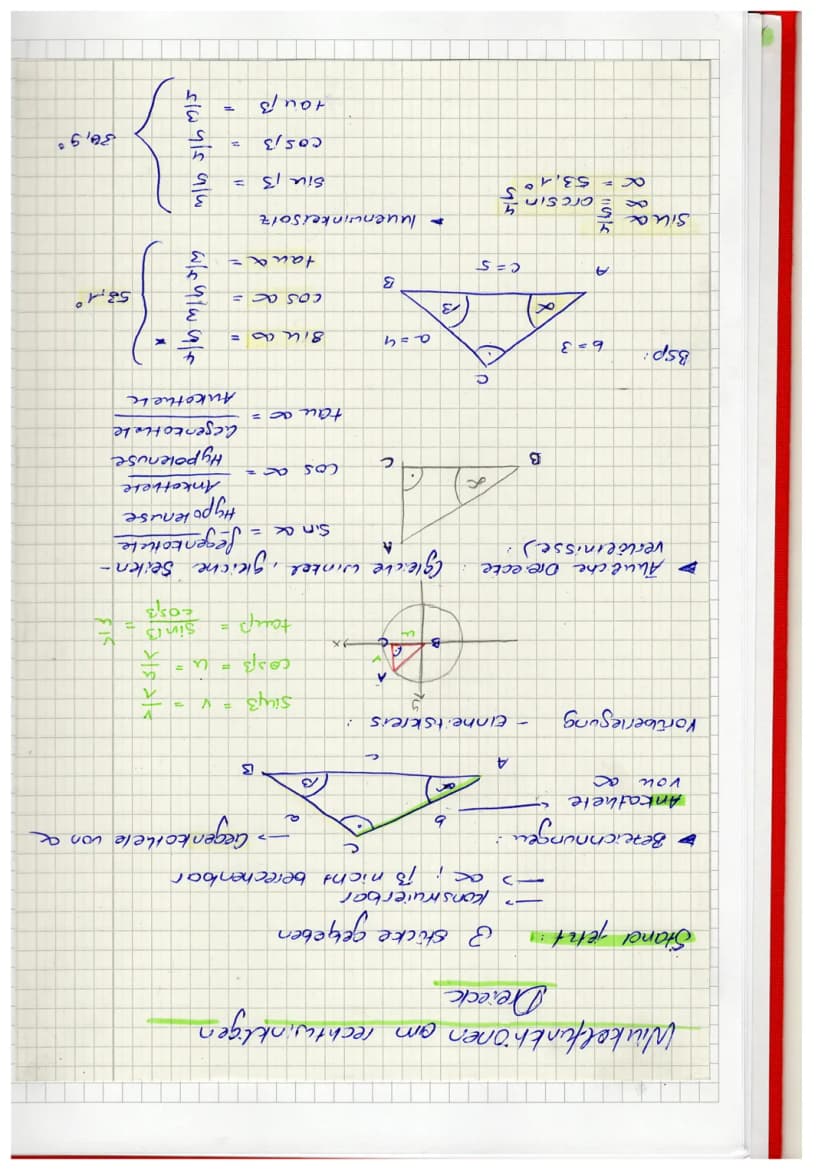 Winkelfunktionen am rechtwinkligen
Dreieck
Stand jetzt: 3 Stücke gegeben
-> konstruierbar
-> α, β nicht berechenbar
▶ Bezeichnungen:
C
b
a
-> Gegenkathete von α
Ankathete
von α
α
β
A
c
B
Vorüberlegung - Einheitskreis:
y
x
A
B
C
u
v
sinβ = v = v/1
cosβ = u = u/1
tanβ = sinβ/cosβ = v/u
▶ Ähnliche Dreiecke: (gleiche Winkel, gleiche Seiten-
verhältnisse):
A
B
C
α
sin α = Gegenkathete/Hypotenuse
cos α = Ankathete/Hypotenuse
tan α = Gegenkathete/Ankathete
Bsp:
C
b = 3
a = 4
α
β
A
c = 5
B
sin α = 4/5 *
cos α = 3/5
tan α = 4/3
53,1°
sin α 4/5
α = arcsin 4/5
α = 53,1°
▶ Innenwinkelsatz
sin β = 3/5
cos β = 4/5
tan β = 3/4
36,9°